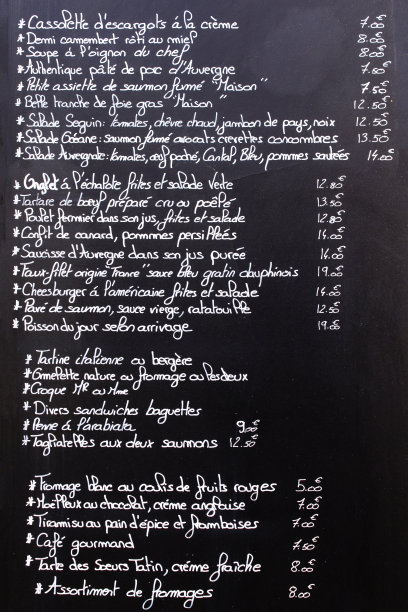 * Cassolette d'escargots à la crème 7.00€
* Demi camembert rôti au miel 8.00€
* Soupe à l'oignon du chef 8.00€
* Authentique pâté de porc d'Auvergne 7.50€
* Petite assiette de saumon fumé "Maison" 7.50€
* Belle tranche de foie gras "Maison" 12.50€
* Salade Seguin: tomates, chèvre chaud, jambon de pays, noix 12.50€
* Salade Océane: saumon fumé avocats crevettes concombres 13.50€
* Salade Auvergnate: tomates, œuf poché, Cantal, Bleu, pommes sautées 14.00€
* Onglet à l'échalote frites et salade verte 12.80€
* Tartare de bœuf préparé cru ou poêlé 13.50€
* Poulet fermier dans son jus, frites et salade 12.80€
* Confit de canard, pommes persillées 14.00€
* Saucisse d'Auvergne dans son jus purée 14.00€
* Faux-filet origine "France" sauce bleu gratin dauphinois 19.00€
* Cheesburger à l'américaine frites et salade 14.00€
* Pavé de saumon, sauce vierge, ratatouille 12.50€
* Poisson du jour selon arrivage 19.00€
* Tartine italienne ou bergère
* Omelette nature ou fromage ou les deux
* Croque Mr ou Mme
* Divers sandwiches baguettes
* Penne à l'arabiata 9.00€
* Tagliatelles aux deux saumons 12.50€
* Fromage blanc au coulis de fruits rouges 5.00€
* Moëlleux au chocolat, crème anglaise 7.00€
* Tiramisu au pain d'épice et framboises 7.00€
* Café gourmand 7.50€
* Tarte des Sœurs Tatin, crème fraîche 8.00€
* Assortiment de fromages 8.00€